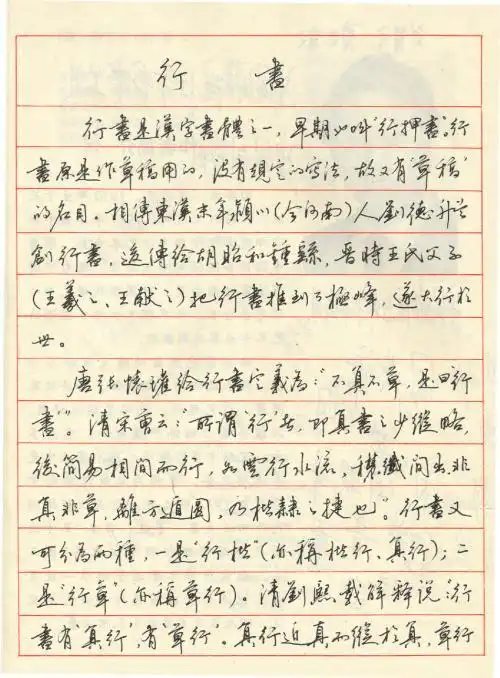 行書
行書是漢字書體之一，早期也叫“行押書”。行
書原是作草稿用的，没有規定的写法，故又有“草稿”
的名目。相傳東漢末年潁川（今河南）人劉德升首
創行書，後傳给胡昭和鍾繇，晋時王氏父子
（王羲之、王献之）把行書推到了極峰，遂大行於
世。
唐张懷瓘给行書定義為：“不真不草，是曰行
書”。清宋曹云：“所謂行者，即真書之少縱略，
後簡易相間而行，如雲行水流，穠纖間出，非
真非草，離方遁圓，乃楷隸之捷也”。行書又
可分為兩種，一是“行楷”（亦稱楷行、真行）；二
是“行草”（亦稱草行）。清劉熙載解释说：“行
書有‘真行’，有‘草行’。真行近真而縱於真，草行